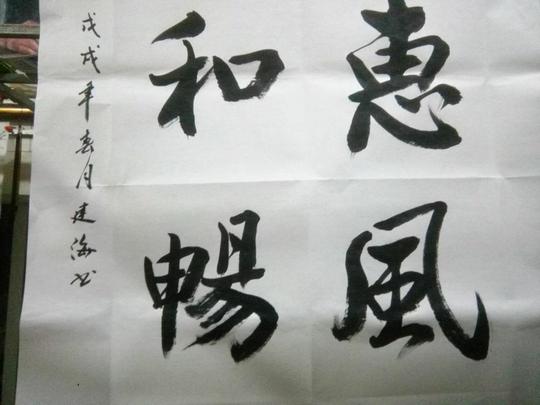 惠風
和暢
戊戌年春月建海书